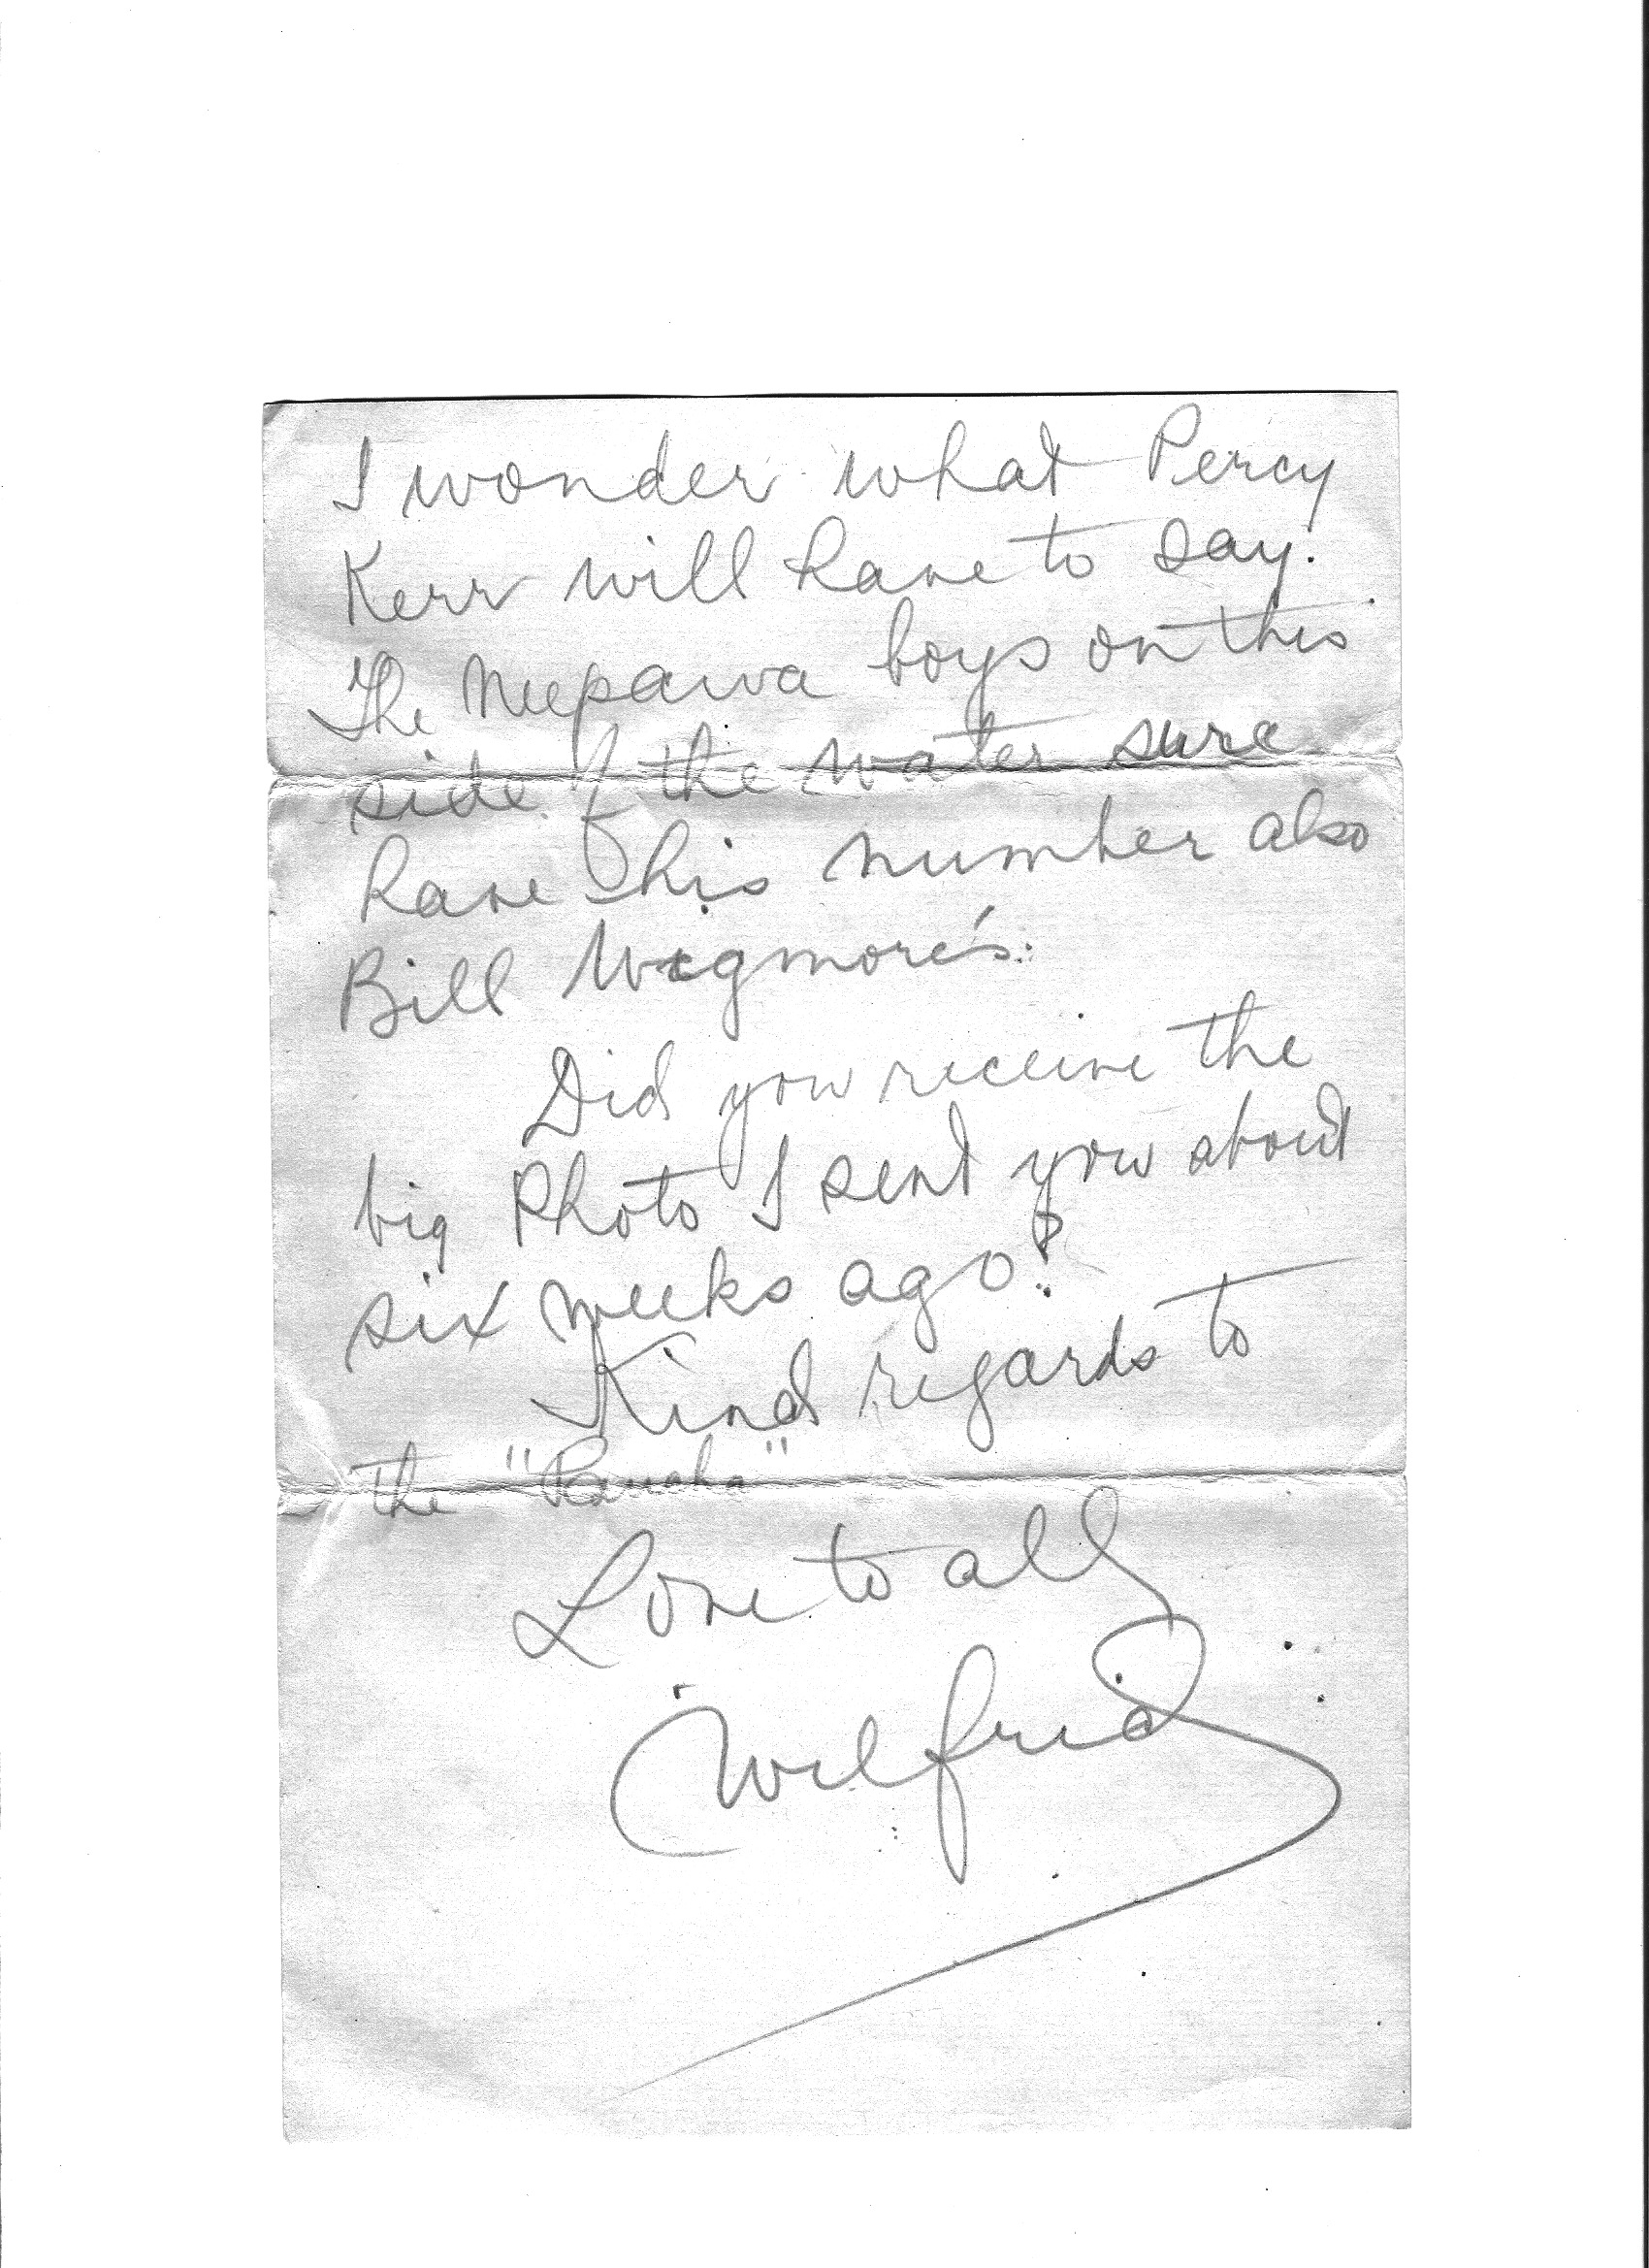 I wonder what Percy
Kerr will have to say.
The Neepawa boys on this
side of the water sure
have his number also
Bill Wigmore's.
Did you receive the
big Photo I sent you about
six weeks ago?
Kind regards to
the "Bunch"
Love to all
Wilfrid